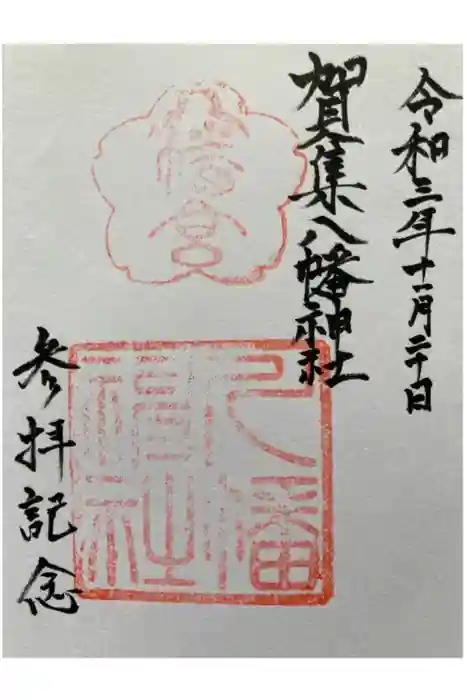 令和三年十一月二十日
賀集八幡神社
八幡宮
八幡神社
参拝記念